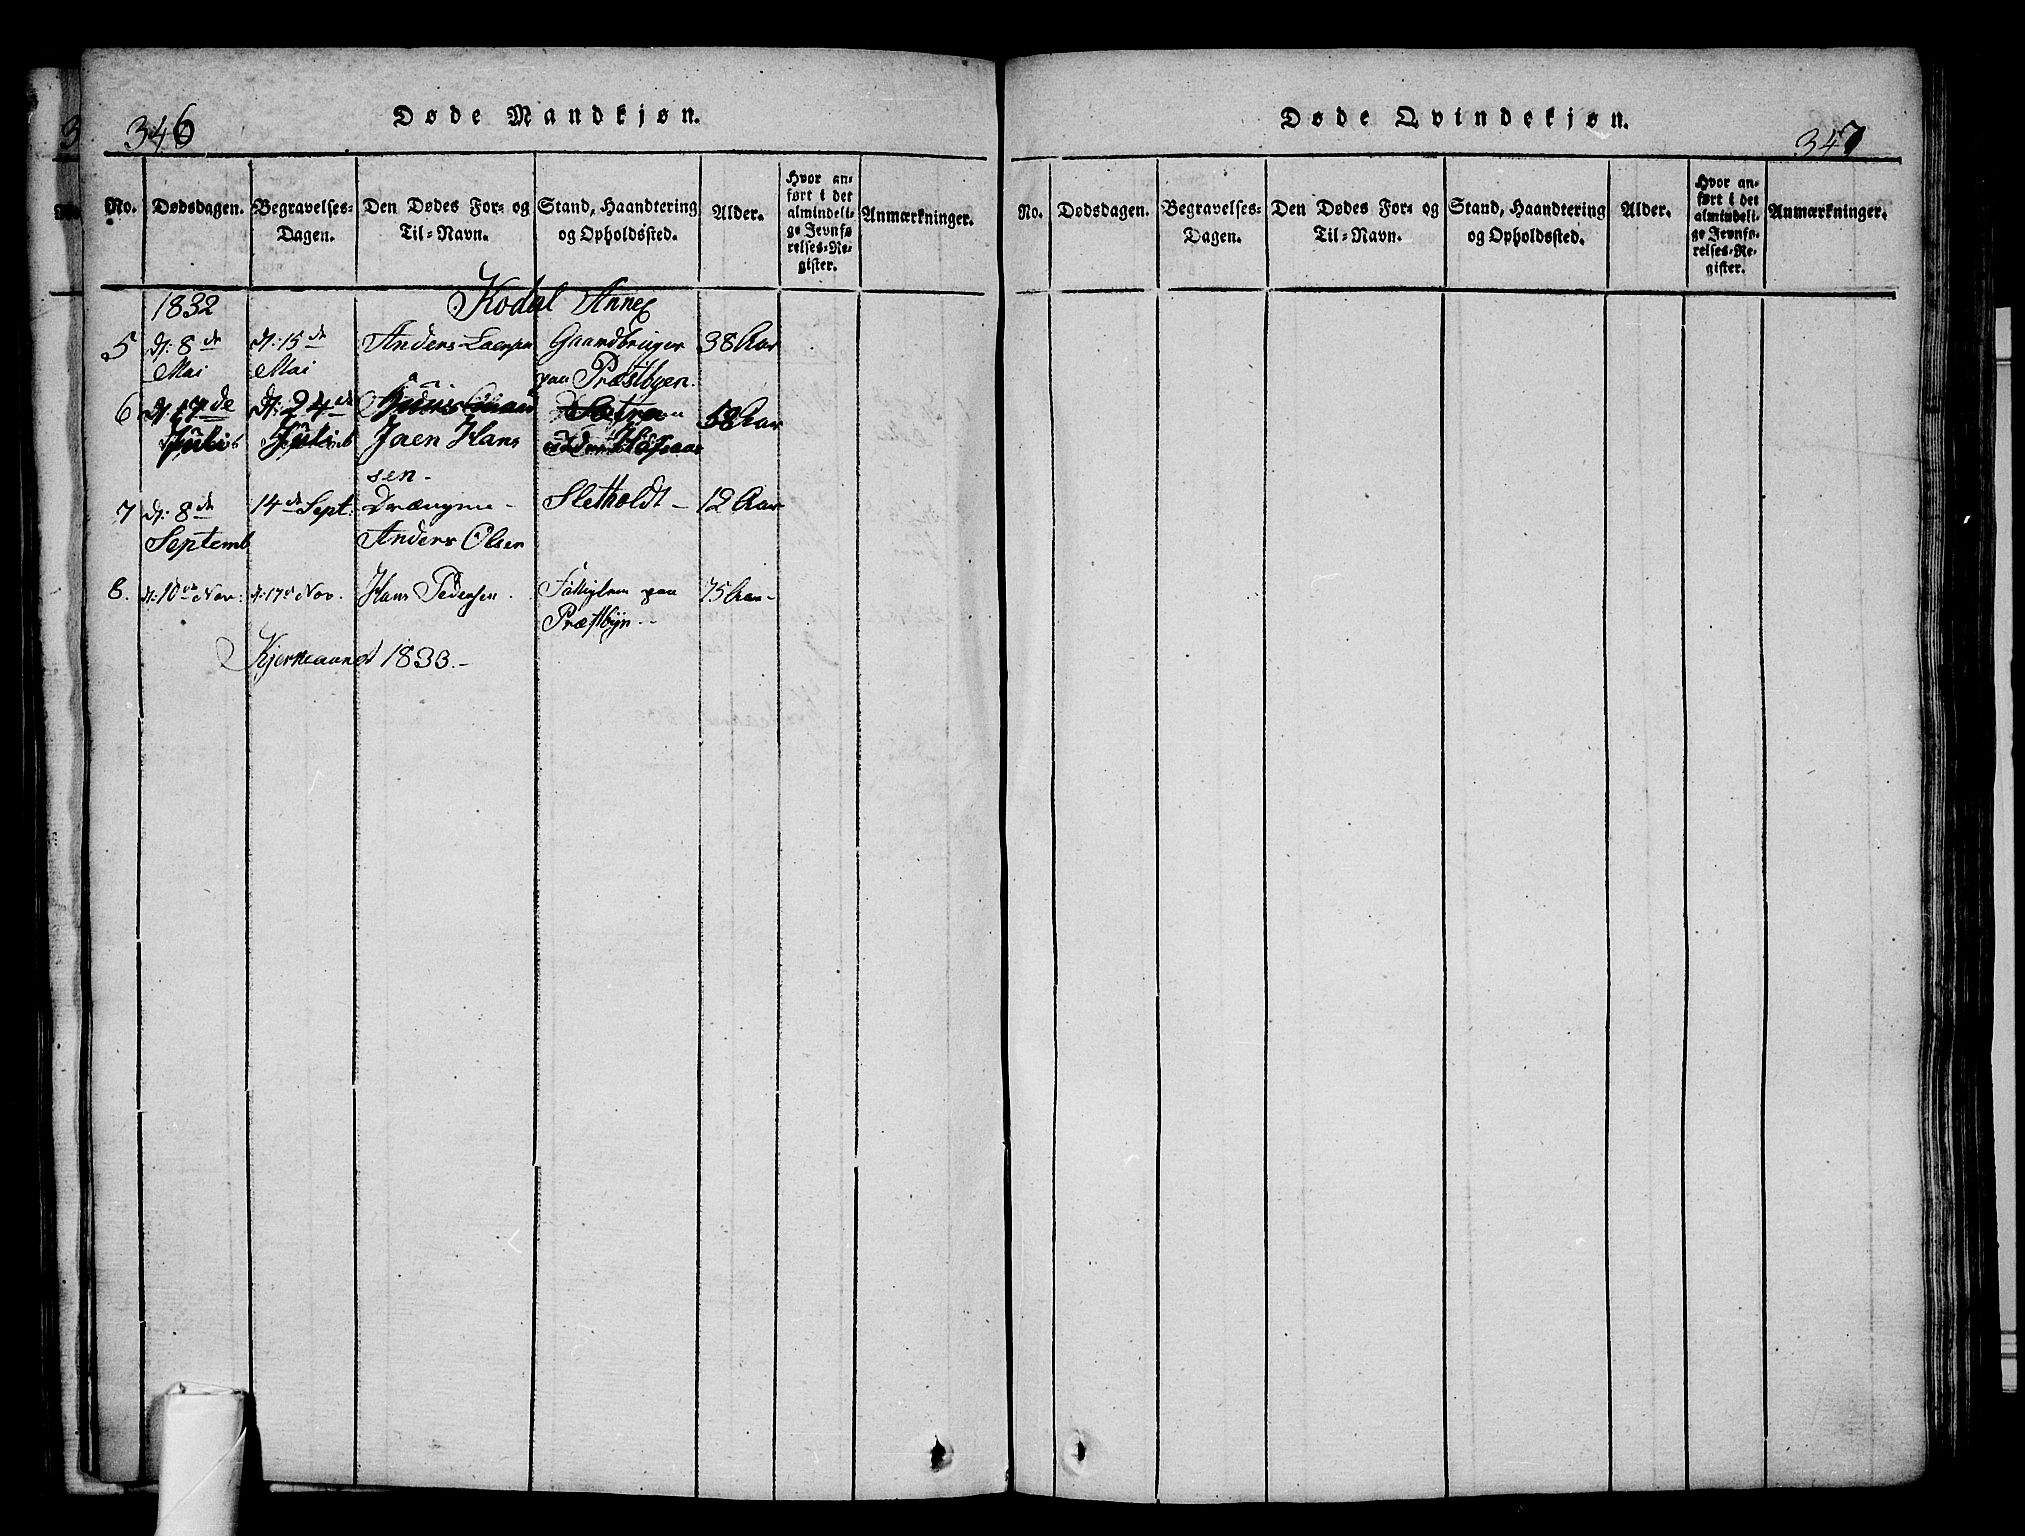 346
Døde Mandkjøn.
No.
Dødsdagen.
Begravelses-
Dagen.
Den Dødes For- og
Til-Navn.
Stand, Haandtering
og Opholdssted.
Alder.
Hvor an-
ført i det
almindeli-
ge Jevnfø-
relses-Re-
gister.
Anmærkninger.
1832
Kodal Annex
5
d: 8de
Mai
d: 15de
Mai
Anders Larsen
Gaardbruger
paa Præstbyen.
38 Aar
6
d: 24de
Juli
Jaen Hans
sen.
58 Aar
7
d: 8de
Septemb
14de Sept:
Drængen
Anders Olsen
Sletholdt
12 Aar
8.
d: 10de Nov:
d: 17de Nov.
Hans Pedersen.
paa
Præstbyn
75 Aar
Kjerkeaaret 1833.
Døde Qvindekjøn.
347
No.
Dødsdagen.
Begravelses-
Dagen.
Den Dødes For- og
Til-Navn.
Stand, Haandtering
og Opholdssted.
Alder.
Hvor an-
ført i det
almindeli-
ge Jevnfø-
relses-Re-
gister.
Anmærkninger.